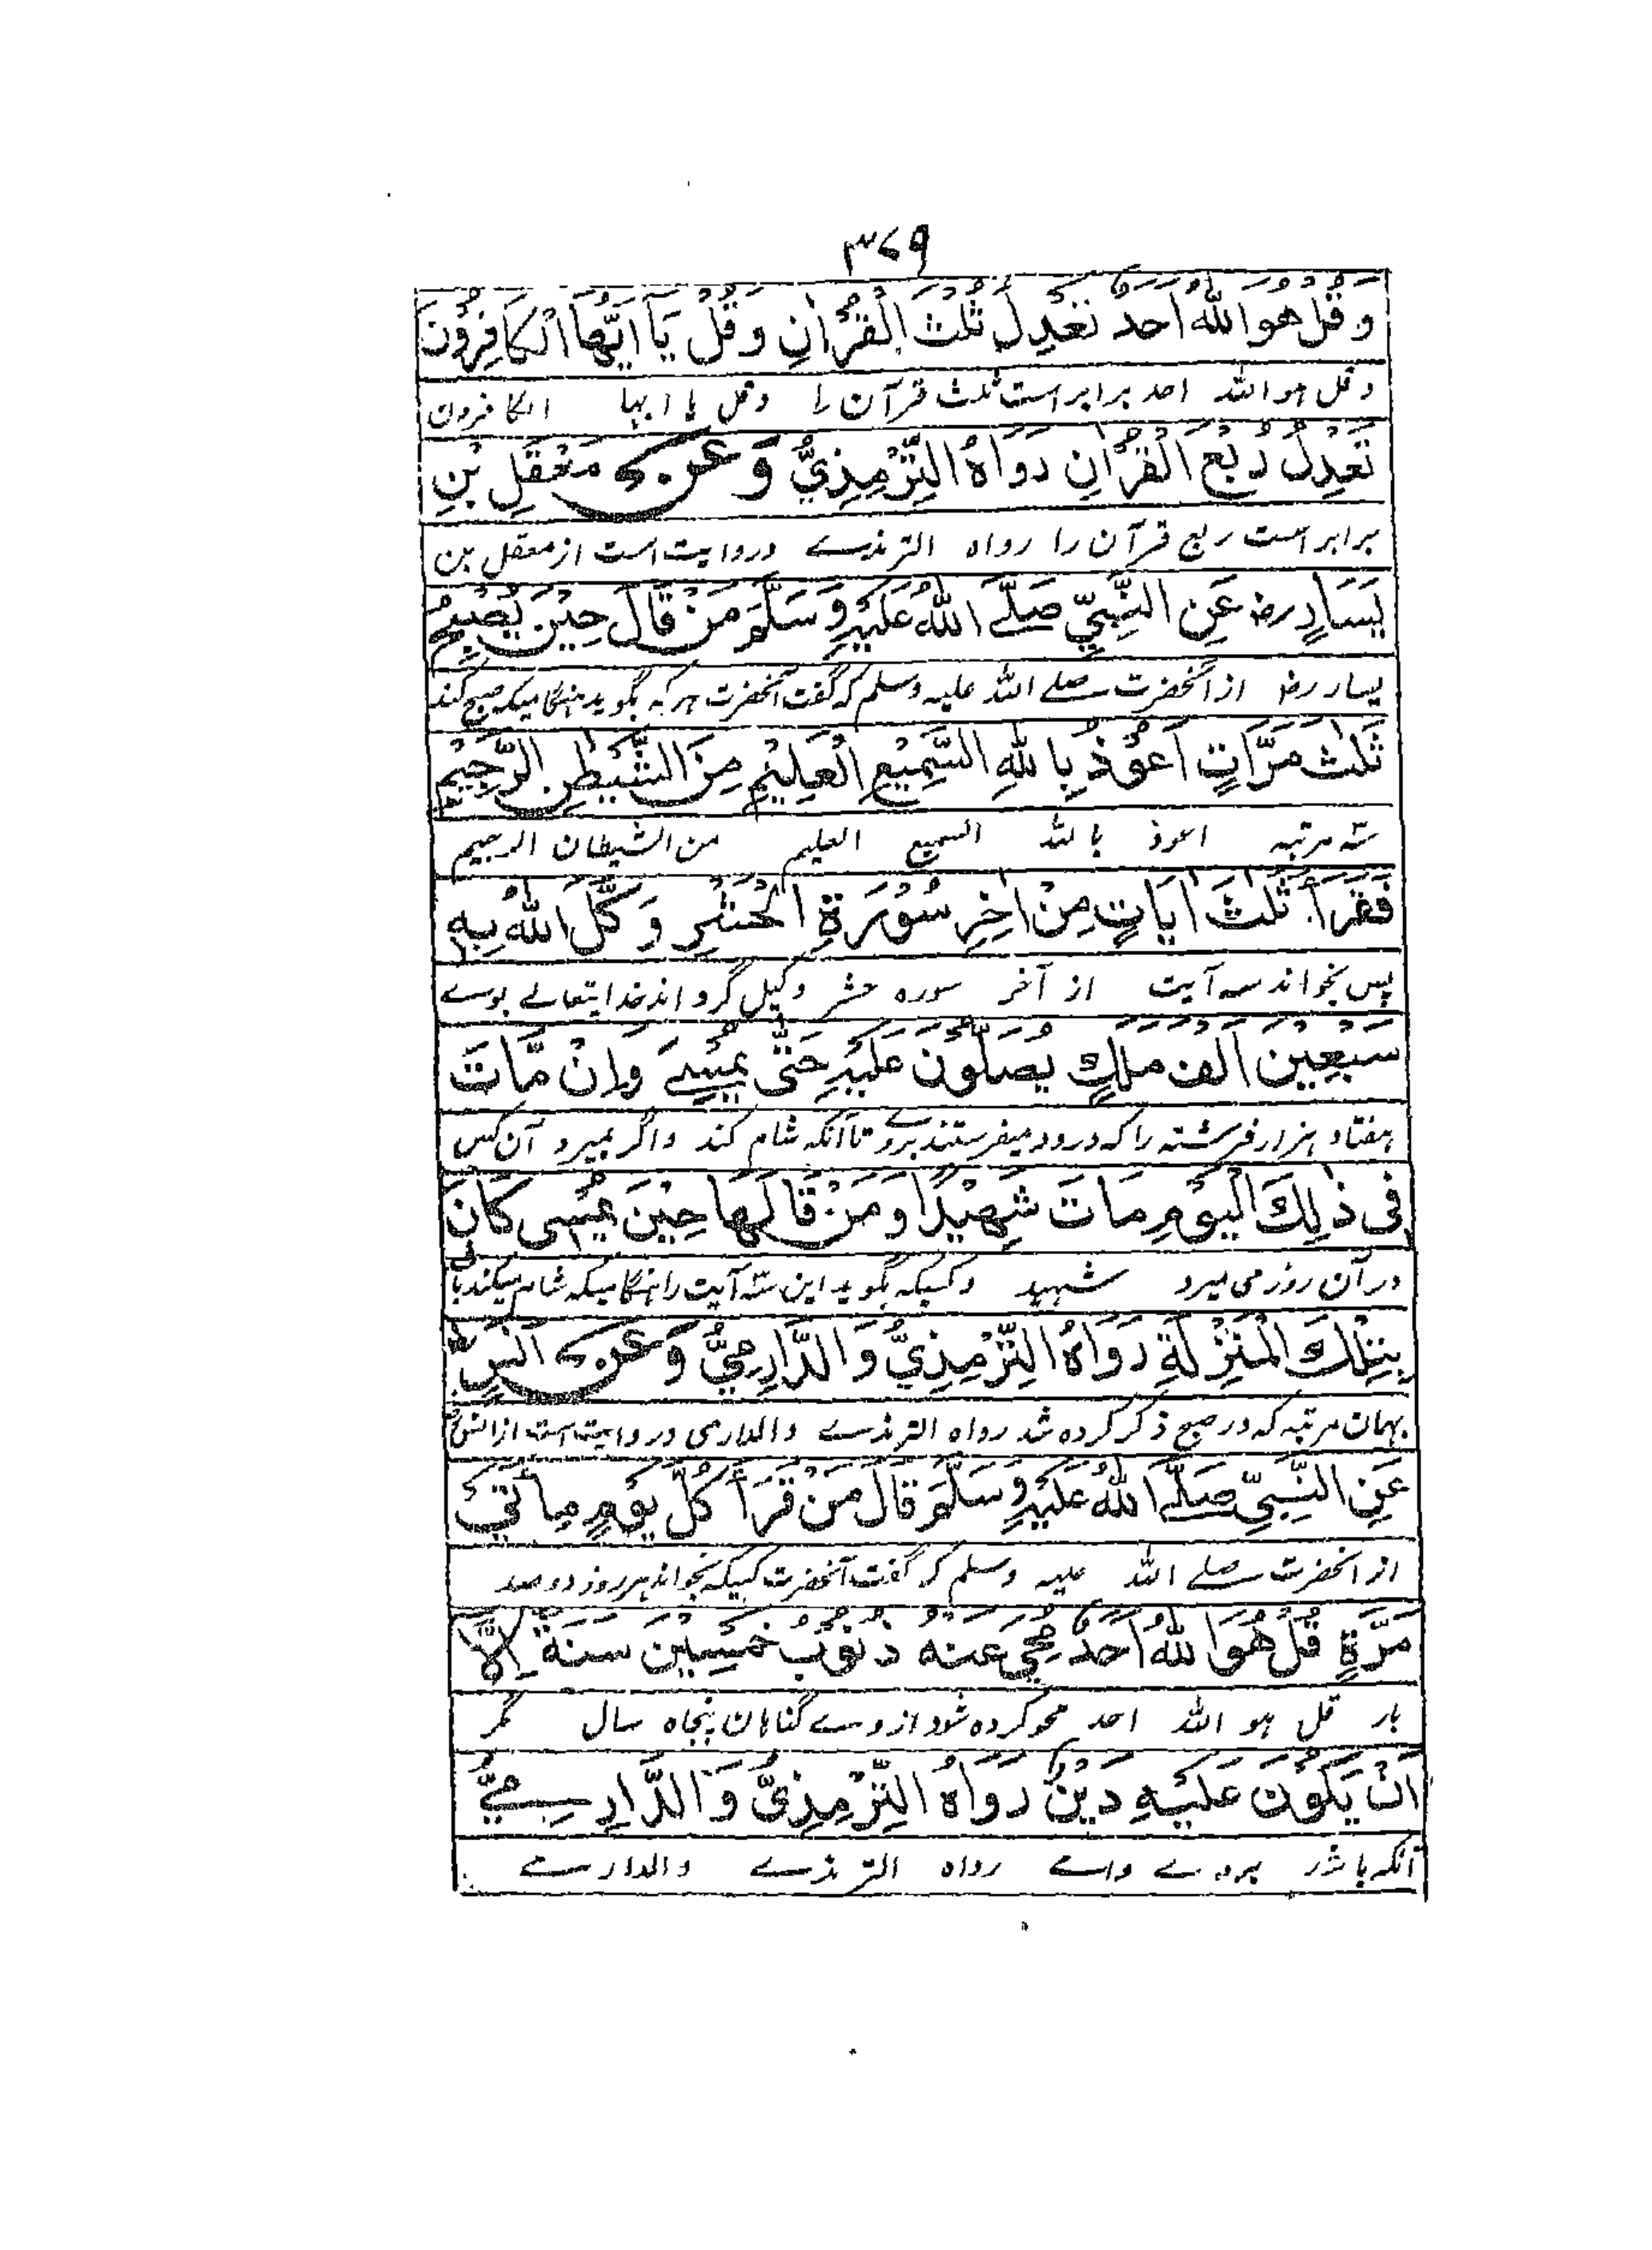 ۳۷۹
وَ قُلْ هُوَ اللّٰهُ اَحَدٌ تَعْدِلُ ثُلُثَ الْقُرْاٰنِ وَ قُلْ يَآ اَيُّهَا الْكَافِرُوْنَ
و قل هو الله احد برابر است ثلث قرآن را و قل یا ایها الکافرون
تَعْدِلُ رُبْعَ الْقُرْاٰنِ رَوَاهُ التِّرْمِذِيُّ وَ عَنْ مَعْقِلِ بْنِ
برابر است ربع قرآن را رواه الترمذے و روایت است از معقل بن
يَسَارٍ رض عَنِ النَّبِيِّ صَلَّے اللّٰهُ عَلَيْهِ وَ سَلَّمَ مَنْ قَالَ حِيْنَ يُصْبِحُ
یسار رض از آنحضرت صلے الله علیه وسلم که گفت آنحضرت هر که بگوید هنگامیکه صبح کند
ثَلٰثَ مَرَّاتٍ اَعُوْذُ بِاللّٰهِ السَّمِيْعِ الْعَلِيْمِ مِنَ الشَّيْطٰنِ الرَّجِيْمِ
سه مرتبه اعوذ بالله السمیع العلیم من الشیطان الرجیم
فَقَرَأَ ثَلٰثَ اٰيَاتٍ مِنْ اٰخِرِ سُوْرَةِ الْحَشْرِ وَكَّلَ اللّٰهُ بِهٖ
پس بخواند سه آیت از آخر سوره حشر وکیل گرداند خدایتعالے بوے
سَبْعِيْنَ اَلْفَ مَلَكٍ يُصَلُّوْنَ عَلَيْهِ حَتّٰى يُمْسِےَ وَاِنْ مَّاتَ
هفتاد هزار فرشته را که درود میفرستند بروے تا آنکه شام کند و اگر بمیرد آن کس
فِى ذٰلِكَ الْيَوْمِ مَاتَ شَهِيْدًا وَ مَنْ قَالَهَا حِيْنَ يُمْسِى كَانَ
در آن روز می میرد شهید و کسیکه بگوید این سه آیت را هنگامیکه شام میکند باشد
بِتِلْكَ الْمَنْزِلَةِ رَوَاهُ التِّرْمِذِيُّ وَ الدَّارِمِيُّ وَ عَنْ اَنَسٍ رض
بهمان مرتبه که در صبح ذکر کرده شد رواه الترمذے والدارمی و روایت است از انس رض
عَنِ النَّبِيِّ صَلَّے اللّٰهُ عَلَيْهِ وَسَلَّمَ قَالَ مَنْ قَرَأَ كُلَّ يَوْمٍ مِائَتَيْ
از آنحضرت صلے الله علیه وسلم که گفت آنحضرت کسیکه بخواند هر روز دو صد
مَرَّةٍ قُلْ هُوَ اللّٰهُ اَحَدٌ مُحِيَ عَنْهُ ذُنُوْبُ خَمْسِيْنَ سَنَةً اِلَّا
بار قل هو الله احد محو کرده شود از وے گناهان پنجاه سال مگر
اَنْ يَكُوْنَ عَلَيْهِ دَيْنٌ رَوَاهُ التِّرْمِذِيُّ وَ الدَّارِمِيُّ
آنکه باشد بروے وامے رواه الترمذے والدارمے